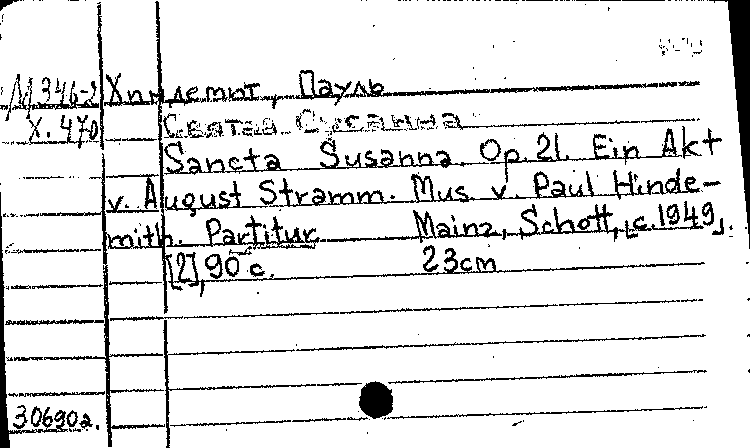 М346-2 Хиндемит, Пауль
Х.470 Святая Сусанна
Sancta Susanna. Op. 21. Ein Akt
v. August Stramm. Mus. v. Paul Hinde-
mith. Partitur. Mainz, Schott, [c.1949].
[2], 90 с. 23cm
306902.